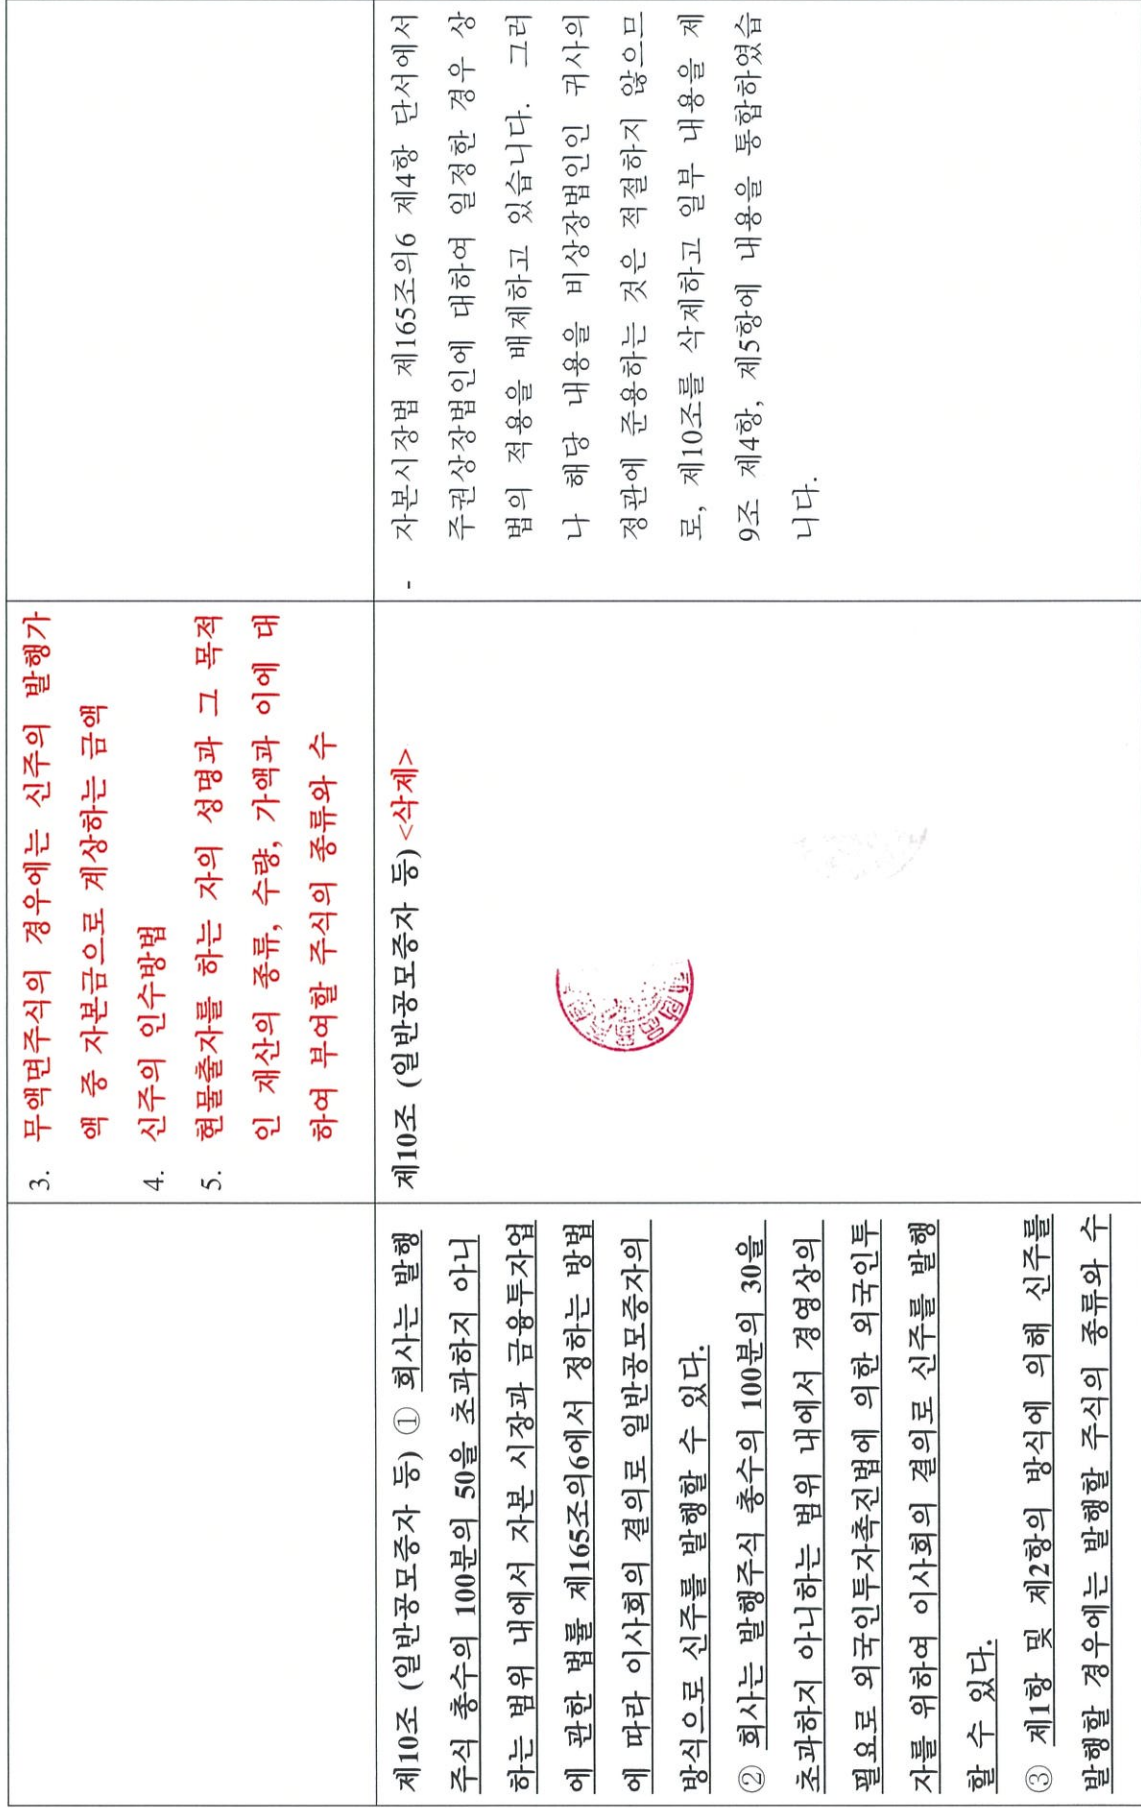 3. 무액면주식의 경우에는 신주의 발행가
액 중 자본금으로 계상하는 금액
4. 신주의 인수방법
5. 현물출자를 하는 자의 성명과 그 목적
인 재산의 종류, 수량, 가액과 이에 대
하여 부여할 주식의 종류와 수
제10조 (일반공모증자 등) ① 회사는 발행
주식 총수의 100분의 50을 초과하지 아니
하는 범위 내에서 자본 시장과 금융투자업
에 관한 법률 제165조의6에서 정하는 방법
에 따라 이사회의 결의로 일반공모증자의
방식으로 신주를 발행할 수 있다.
② 회사는 발행주식 총수의 100분의 30을
초과하지 아니하는 범위 내에서 경영상의
필요로 외국인투자촉진법에 의한 외국인투
자를 위하여 이사회의 결의로 신주를 발행
할 수 있다.
③ 제1항 및 제2항의 방식에 의해 신주를
발행할 경우에는 발행할 주식의 종류와 수
제10조 (일반공모증자 등) <삭제>
- 자본시장법 제165조의6 제4항 단서에서
주권상장법인에 대하여 일정한 경우 상
법의 적용을 배제하고 있습니다. 그러
나 해당 내용을 비상장법인인 귀사의
정관에 준용하는 것은 적절하지 않으므
로, 제10조를 삭제하고 일부 내용을 제
9조 제4항, 제5항에 내용을 통합하였습
니다.